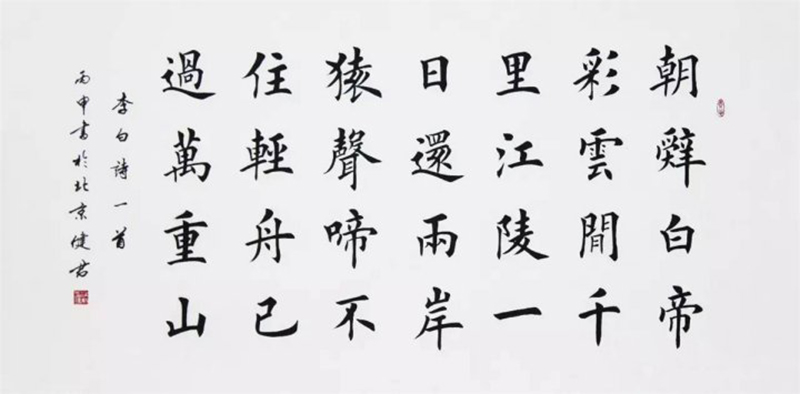 朝辤白帝
彩雲間千
里江陵一
日還兩岸
猿聲啼不
住輕舟已
過萬重山
李白詩一首
丙申書於北京健君